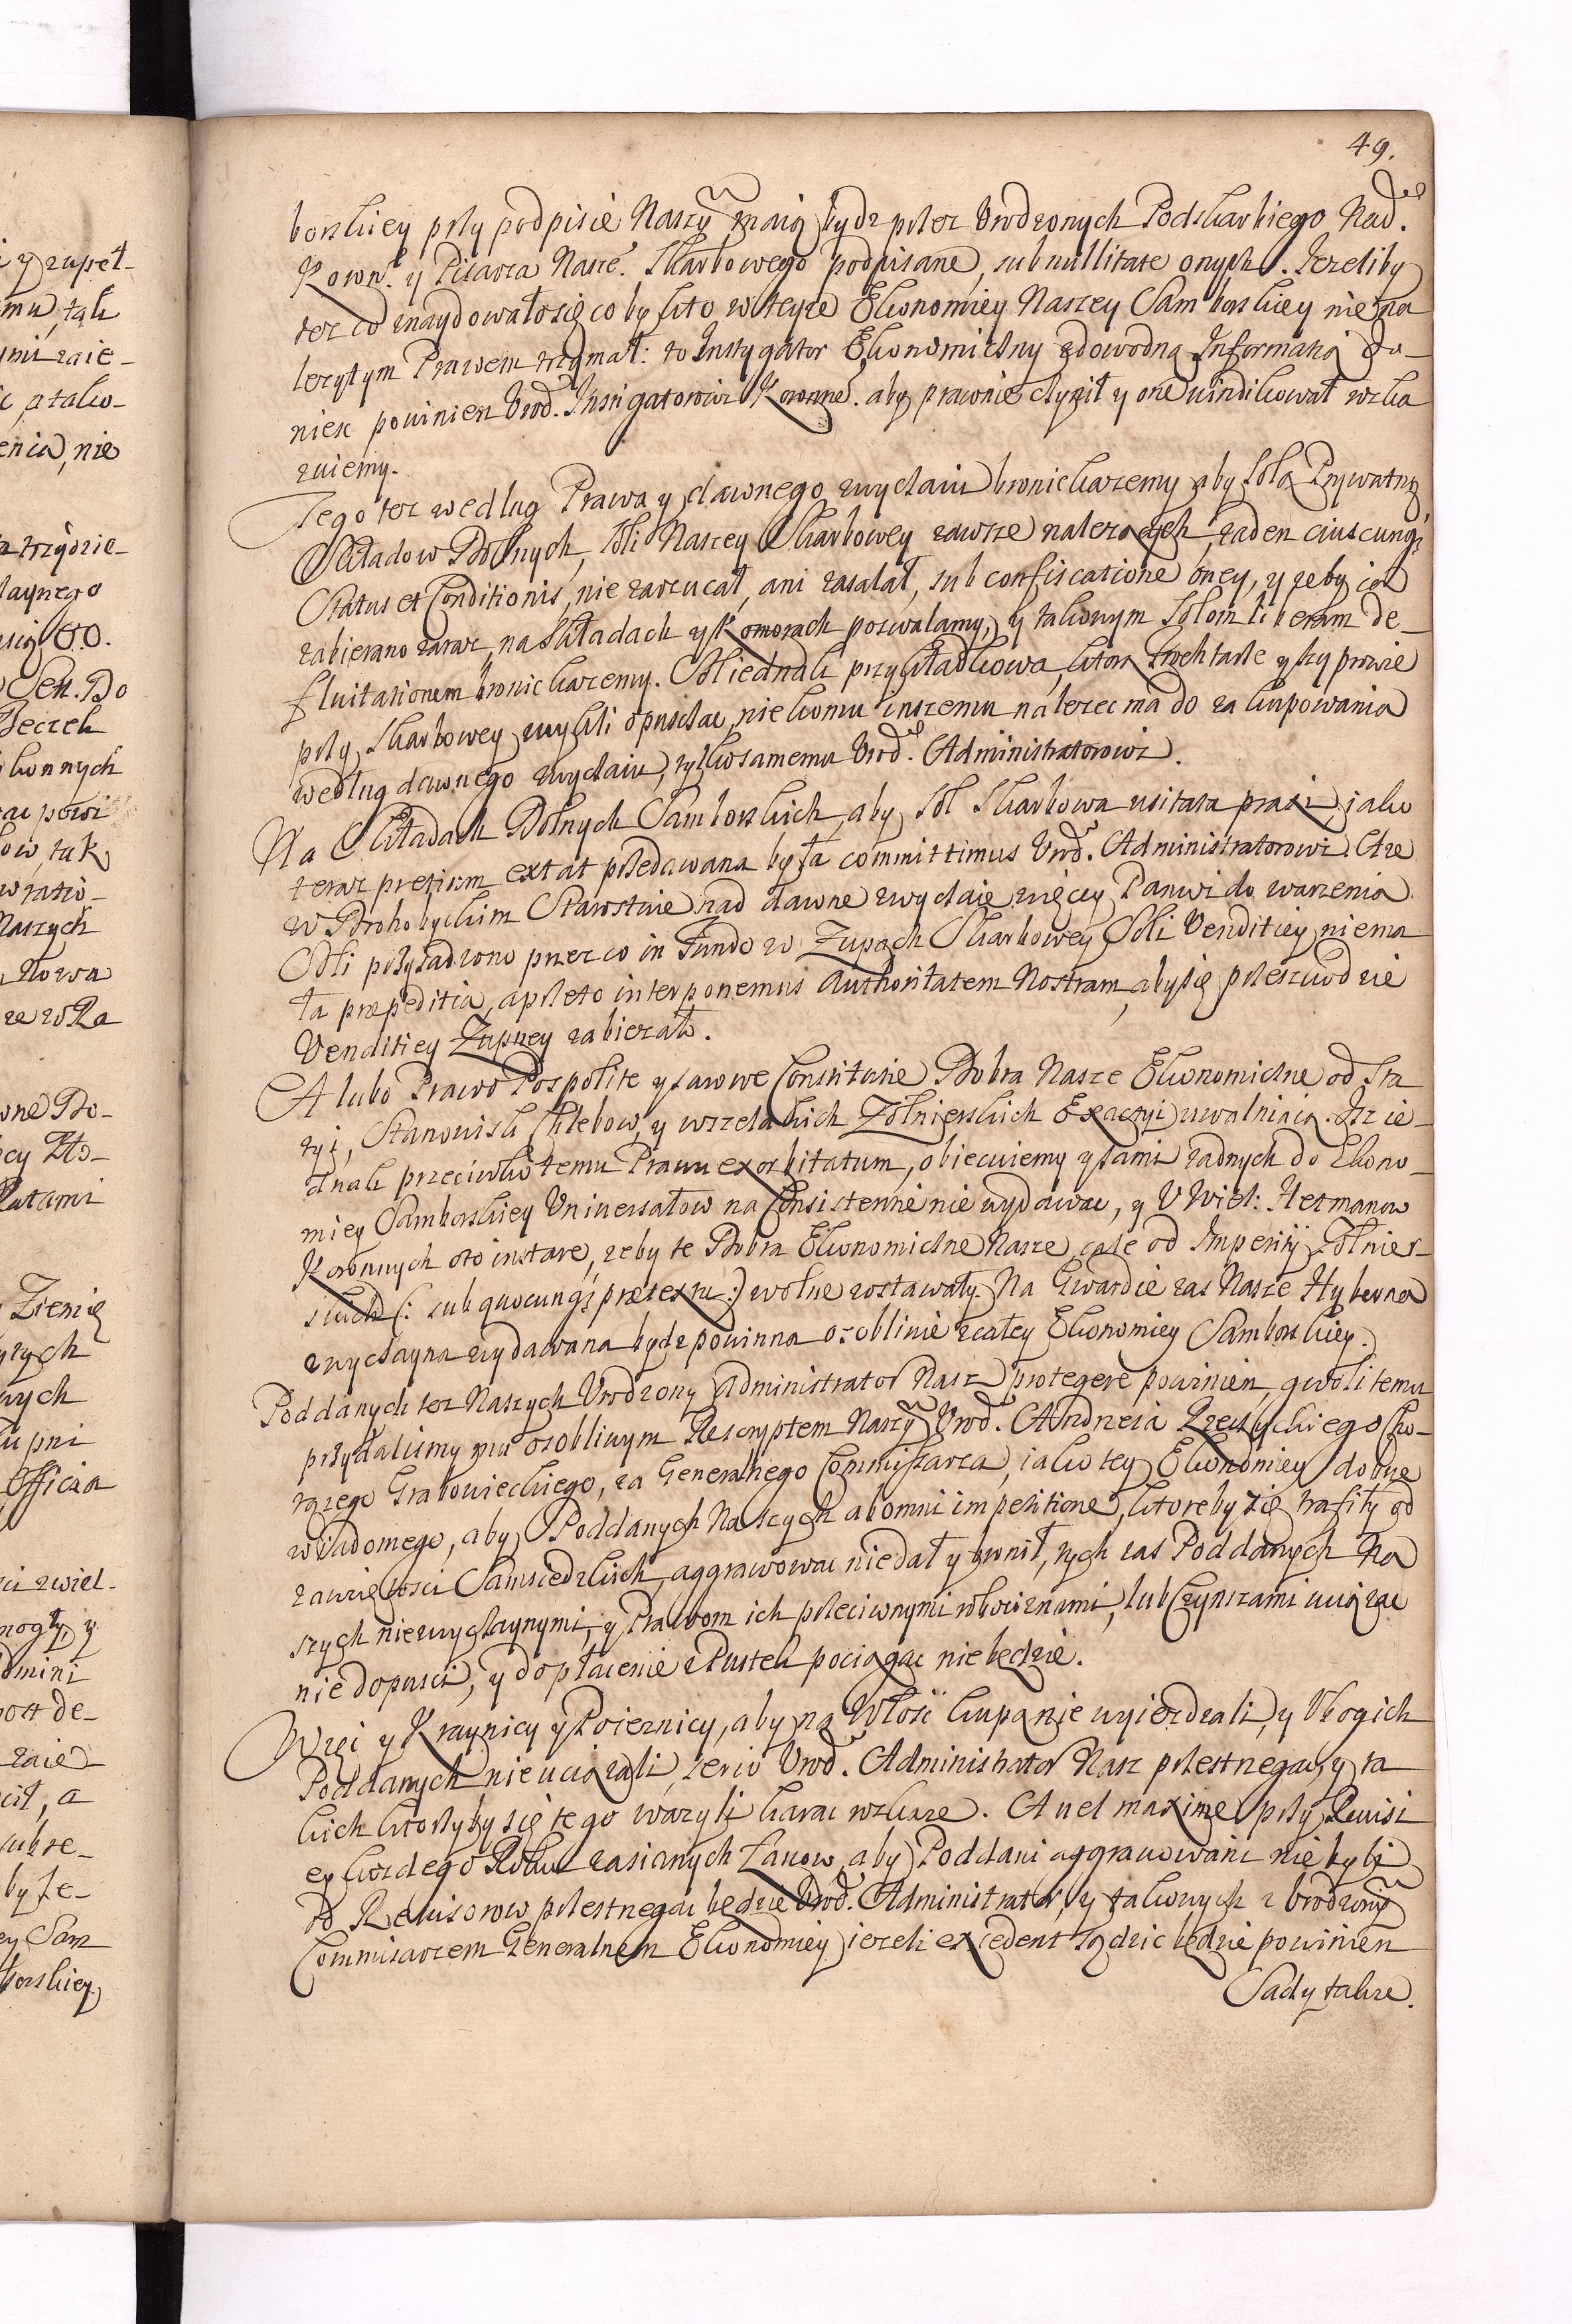 49.
borskiey przy podpisie Naszy maią bydz przez Urodzonych Podskarbiego Nad.
Koron. y Pisarza Nasze. Skarbowego podpisane, sub nullitate onych. Jezeliby
tez co znaydowało się co by kto w teyze Ekonomiey Naszey Samborskiey niena
lezytym Prawem trzymał: to Instygator Ekonomiczny zdowodną Informatią do-
niesc powinien Urod. Instigatorowi Koronne. aby prawnie czynił y one windikował wska
zuiemy.
Tego tez według Prawa y dawnego zwyczaiu bronic kazemy aby Solą Prywatną
Składow Dolnych, Soli Naszey Skarbowey zawsze nalezących, zaden cuiuscunq
Status et Conditionis, nie zarzucał, ani zasalał, sub confiscatione oney, y zeby ią
zabierano zaraz na Składach y Komorach pozwalamy, y takowym Solom liberam de-
fluitationem bronic kazemy. Sol iednak przykładkowa, ktorą
przy Skarbowey zwykli opuszczac, nie komu inszemu nalezec ma do zakupowania
według dawnego zwyczaiu, tylko samemu Urod. Administratorowi.
Na Składach Dolnych Samborskich, aby Sol Skarbowa usitata praxi, iako
teraz pretium extat przedawana była committimus Urod. Administratorowi. A ze
w Drohobyckim Starostwie nad dawne zwyczaie więcey Panwi do warzenia
Soli przysadzono przez co in Fundo w Zupach Skarbowey Soli Venditiey niema
ła præpeditia, a przeto interponemus Authoritatem Nostram, aby się przeszkodzie
Venditiey Zupney zabierało.
A lubo Prawo Pospolite y sarowe Constitutie Dobra Nasze Ekonomiczne od Sta
tyi, Stanowisk Chlebow, y wszelakich Zołnierskich Exactyi uwalniaią. Jz ie-
dnak przeciwko temu Prawu exorbitatum, obiecuiemy y sami zadnych do Ekono-
miey Samborskiey Uniwersałow na Consistentie nie wydawac, y U Wiel: Hetmanow
Koronnych oto instare, zeby te Dobra Ekonomiczne Nasze, całe od Impetÿ Zołnier-
skich (: sub quocunq prætextu :) wolne zostawały. Na Gwardie zas Nasze Hyberna
zwyczayna wydawana bydz powinna osobliwie z całey Ekonomiey Samborskiey.
Poddanych tez Naszych Urodzony Administrator Nasz protegere powinien, gwoli temu
przydalismy mu osobliwym Rescryptem Naszy Urod. Andrzeia Rzeczyckiego Cho-
rązego Grabowieckiego, za Generalnego Commissarza, iako tey Ekonomiey dobrze
wiadomego, aby Poddanych Naszych ab omni impetitione, ktoreby się trafiły od
zawziętosci Samsiedzkich, aggrawowac nie dał y bronił, tych zas Poddanych Na
szych niezwyczaynymi, y Prawom ich przeciwnymi robociznami, lub Czynszami uciązac
nie dopusci, y do płacenie z Pustek pociągac nie będzie.
Wzgi y Kraynicy y Poieznicy, aby na Włosc kupą nie wyiezdzali, y Ubogich
Poddanych nie uciązali, serio Urod. Administrator Nasz przestrzegac, y ta
kich ktorzyby się tego wazyli karac wskaze. A uel maxime przy Rewisi
ey kozdego Roku zasianych Łanow, aby Poddani aggrawowani nie byli
od Rewisorow przestrzegac będzie Urod. Administrator, y takowych z Urodzony
Commisarzem Generalnem Ekonomiey iezeli excedent sądzic będzie powinien
Sady takze.